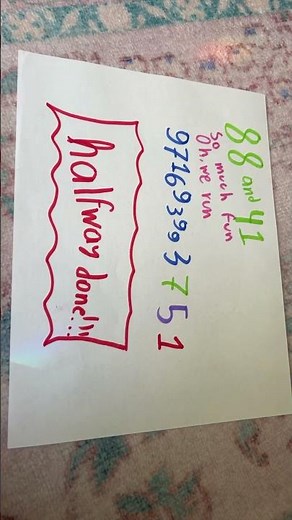 88 and 41
So much fun
Oh, we run
971693993751
halfway done!!!